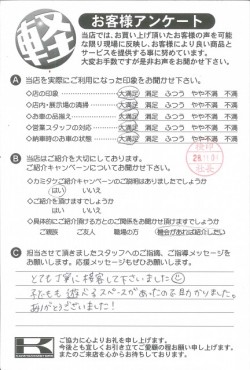 軽
お客様アンケート
当店では、お買い上げ頂いたお客様の声を可能
な限り現場に反映し、お客様により良い商品と
サービスを提供する事に努めています。
大変お手数ですが是非お声をお聞かせ下さい。
A 当店を実際にご利用になった印象をお聞かせ下さい。
◇店の印象 大満足 満足 ふつう やや不満 不満
◇店内・展示場の清掃 大満足 満足 ふつう やや不満 不満
◇お車の品揃え 大満足 満足 ふつう やや不満 不満
◇営業スタッフの対応 大満足 満足 ふつう やや不満 不満
◇納車時のお車の状態 大満足 満足 ふつう やや不満 不満
B 当店はご紹介を大切にしております。
ご紹介キャンペーンについてお聞かせ下さい。
◇カミタケご紹介キャンペーンの説明はありましたでしょうか
はい いいえ
◇ご紹介を頂けますでしょうか
はい いいえ
◇具体的にご紹介頂ける方とのご関係をお聞かせ頂けますでしょうか
ご親族 ご友人 職場の方 機会があれば紹介したい
C 担当させて頂きましたスタッフへのご指摘、ご指導メッセージを
お願いします。応援メッセージもぜひお願いします。
とても丁寧に接客して下さいました
子どもも遊べるスペースがあったので助かりました。
ありがとうございました!
K
ご協力に心よりお礼を申し上げます。
今後とも宜しくお引き立てご愛顧の程お願い申し上げます。
またのご来店を心からお待ちしております。